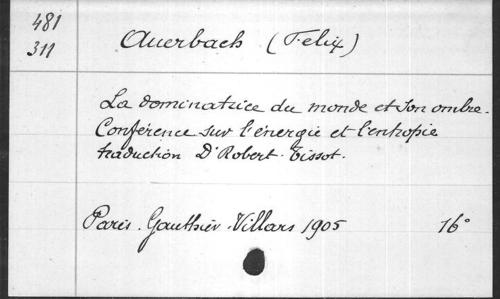 481
311
Auerbach (Felix)
La dominatrice du monde et son ombre.
Conférence sur l'énergie et l'entropie
traduction Dr Robert-Tissot.
Paris. Gauthier-Villars 1905 16°